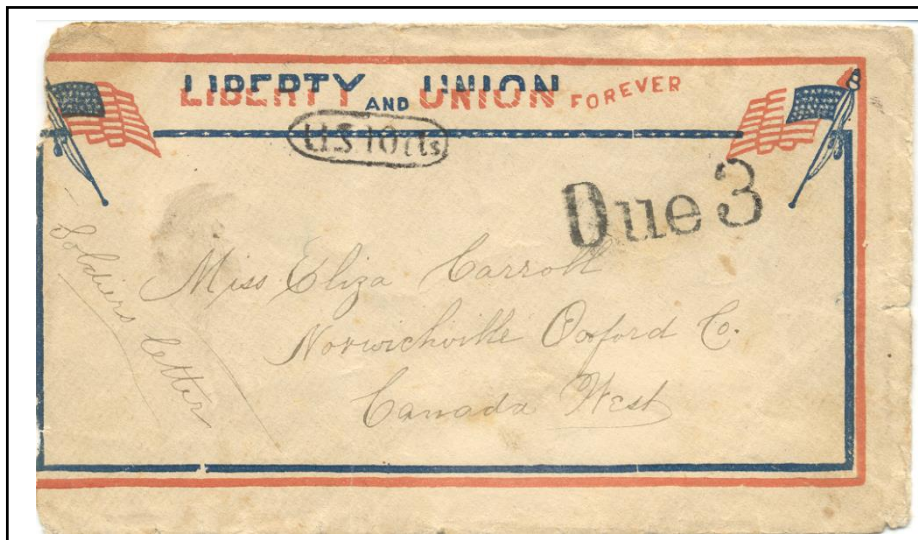 LIBERTY AND UNION FOREVER
U.S 10 cts
Due 3
Soldiers letter
Miss Eliza Carroll
Norwichville Oxford C.
Canada West